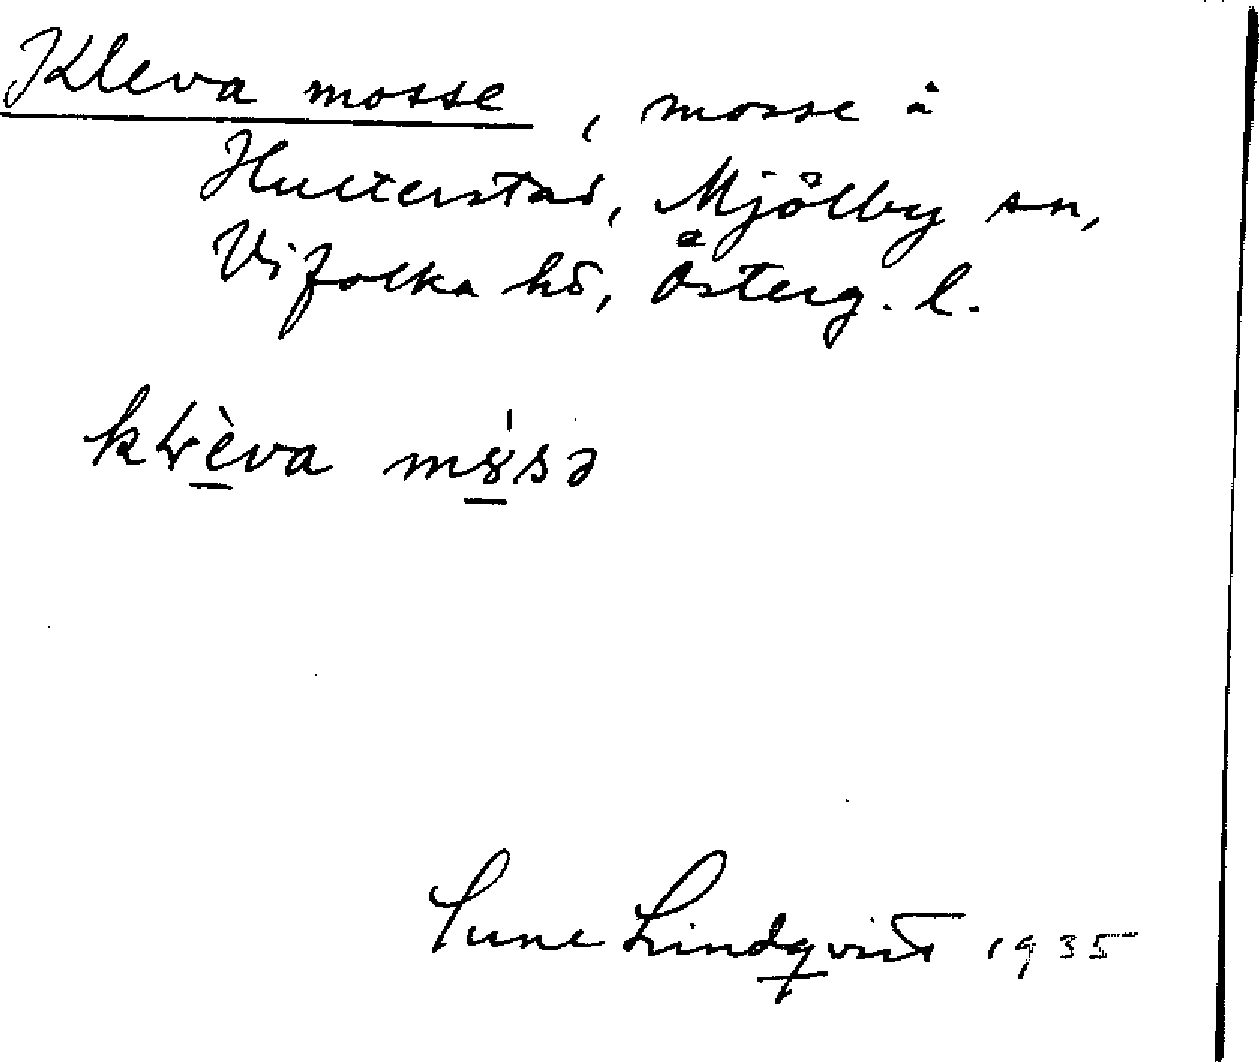 Kleva mosse, mosse å
Hulterstad, Mjölby sn,
Vifolka hd, Österg. l.
mɞ̀sə
Sune Lindqvist 1935